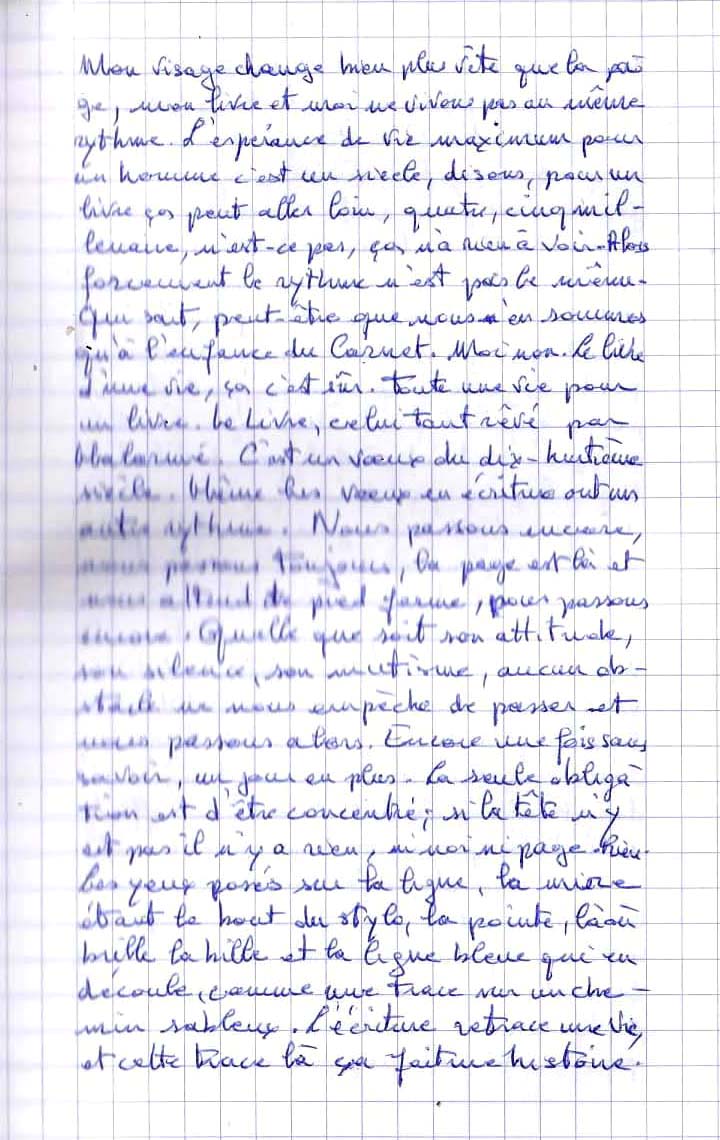 Mon visage change bien plus vite que la pa
ge, mon livre et moi ne vivons pas au même
rythme. L'espérance de vie maximum pour
un homme c'est un siècle, disons, pour un
livre ça peut aller loin, quatre, cinq mil-
lenaire, n'est-ce pas, ça n'a rien à voir. Alors
forcement le rythme n'est pas le même.
Qui sait, peut-être que nous n'en sommes
qu'à l'enfance du Carnet. Moi non. Le livre
d'une vie, ça c'est sûr. Toute une vie pour
un livre. Le Livre, celui tant rêvé par
Mallarmé. C'est un voeux du dix-huitième
siècle. Même les voeux en écriture ont un
autre rythme. Nous passons encore,
nous passons toujours, la page est là et
nous attend de pied ferme, nous passons
encore. Quelle que soit son attitude,
son silence, son mutisme, aucun ob-
stacle ne nous empêche de passer et
nous passons alors. Encore une fois sans
savoir, un jour en plus. La seule obliga
tion est d'être concentré; si la tête n'y
est pas il n'y a rien, ni moi ni page. Rien.
Les yeux posés sur la ligne, la mire
étant le bout du stylo, la pointe, là où
brille la bille et la ligne bleue qui en
découle, comme une trace sur un che-
min sableux. L'écriture retrace une vie,
et cette trace là ça fait une histoire.